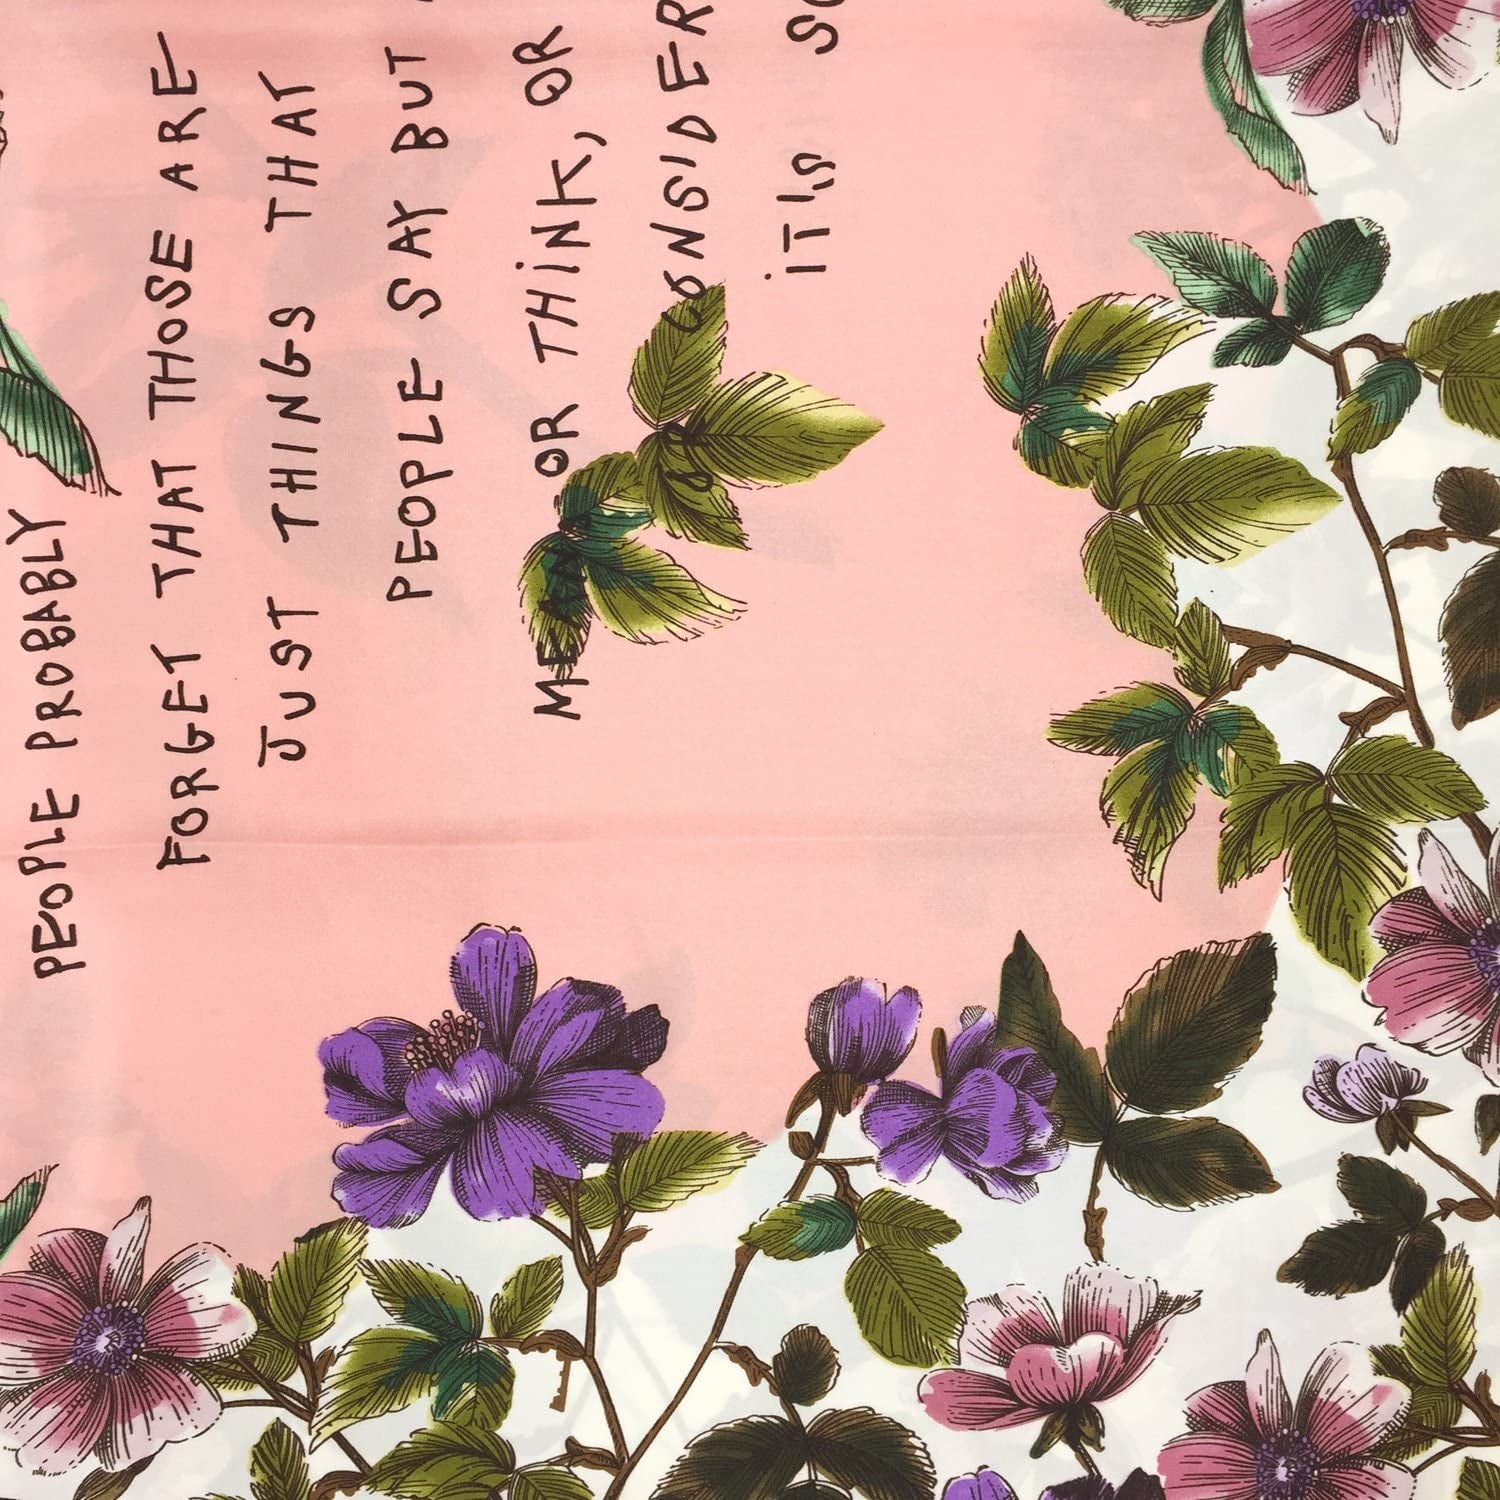 PEOPLE PROBABLY
FORGET THAT THOSE ARE
JUST THINGS THAT
PEOPLE SAY BUT
MEAN OR THINK, OR
OR CONSIDER
IT'S